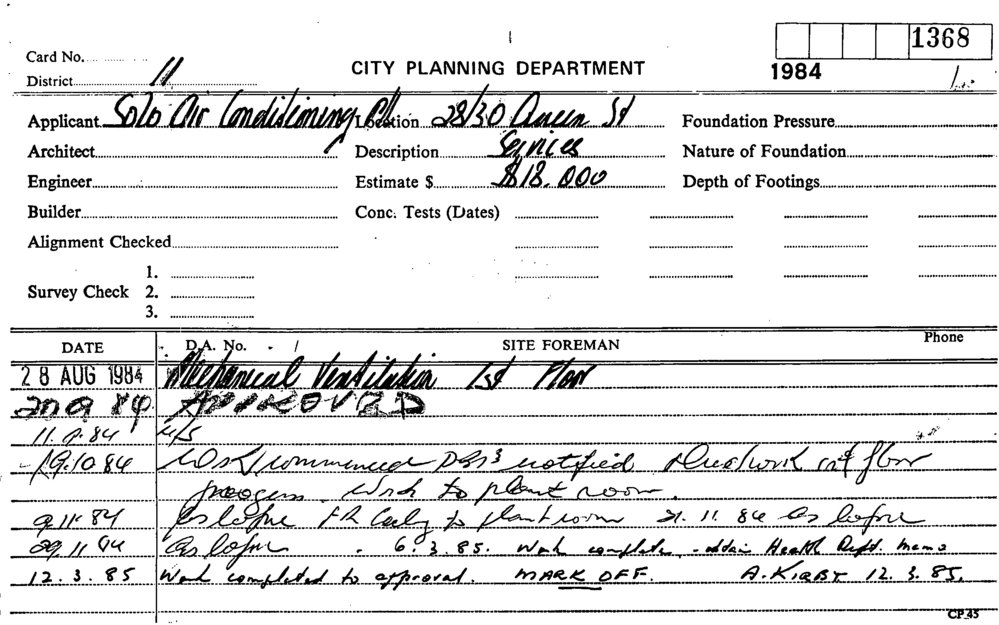 1368
Card No.
CITY PLANNING DEPARTMENT
1984
District 11
Applicant Solo Air Conditioning P/L Location 28/30 Queen St Foundation Pressure
Architect Description Services Nature of Foundation
Engineer Estimate $ $18.000 Depth of Footings
Builder Conc. Tests (Dates)
Alignment Checked
1.
Survey Check 2.
3.
DATE D.A. No. SITE FOREMAN Phone
28 AUG 1984 Mechanical Ventilation 1st Floor
9 84 APPROVED
84 N/S
19.10.84 Work commenced notified Ductwork 1st floor
progress. Work to plant room.
9.11.84 As before FR to plantroom 21.11.84 As before
29.11.84 As before. 6.3.85. Work complete - obtain Health Dept. memo
12.3.85 Work completed to approval. MARK OFF. A. KIRBY 12.3.85.
CP.45